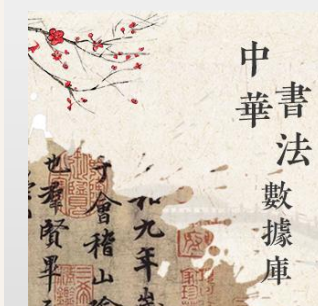 中華
書法
數據庫
和九年歲
于會稽山陰
也羣賢畢